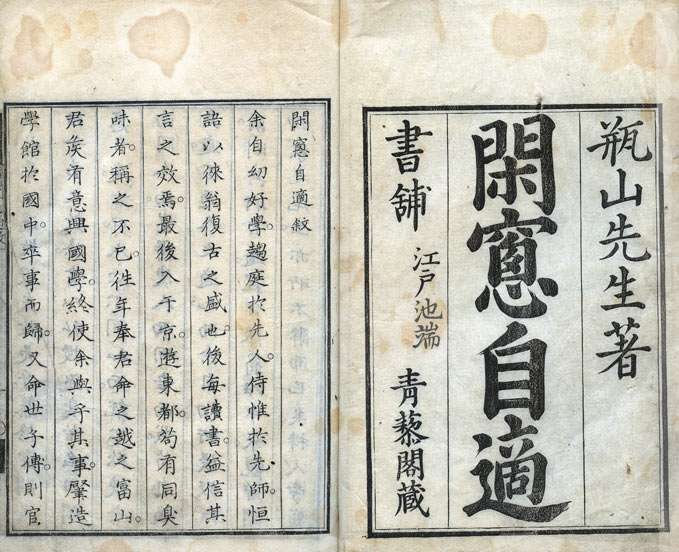 瓶山先生著
閑窻自適
書舗 江戸池端 青藜閣蔵
閑窻自適敘
余自幼好學。趨庭於先人。侍惟於先師。恒
語以徠翁復古之盛也。後每讀書益信其
言之效焉。最後入于京。遊東都。苟有同臭
味者。稱之不已。往年奉君命之越之富山。
君矦有意興國學。終使余與于其事。肇造
學館於國中。卒事而歸。又命世子傳。則官